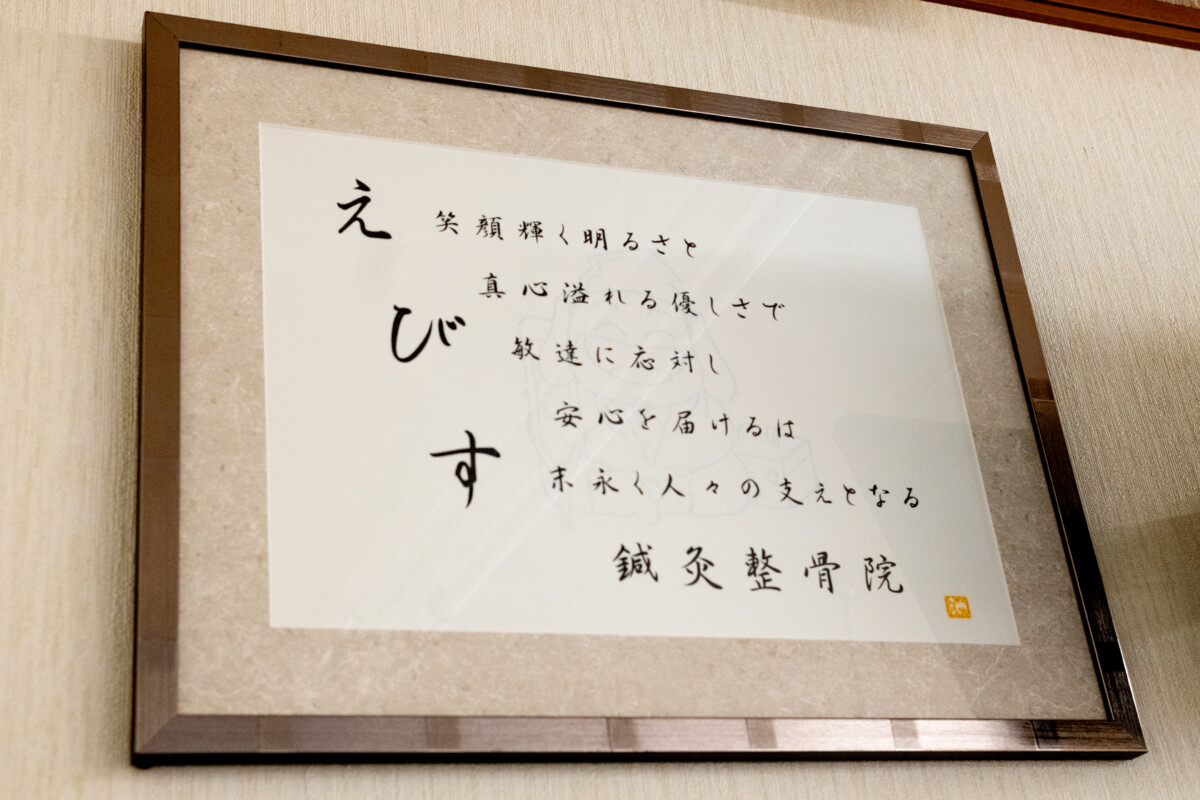 えびす
笑顔輝く明るさと
真心溢れる優しさで
敏達に応対し
安心を届けるは
末永く人々の支えとなる
鍼灸整骨院